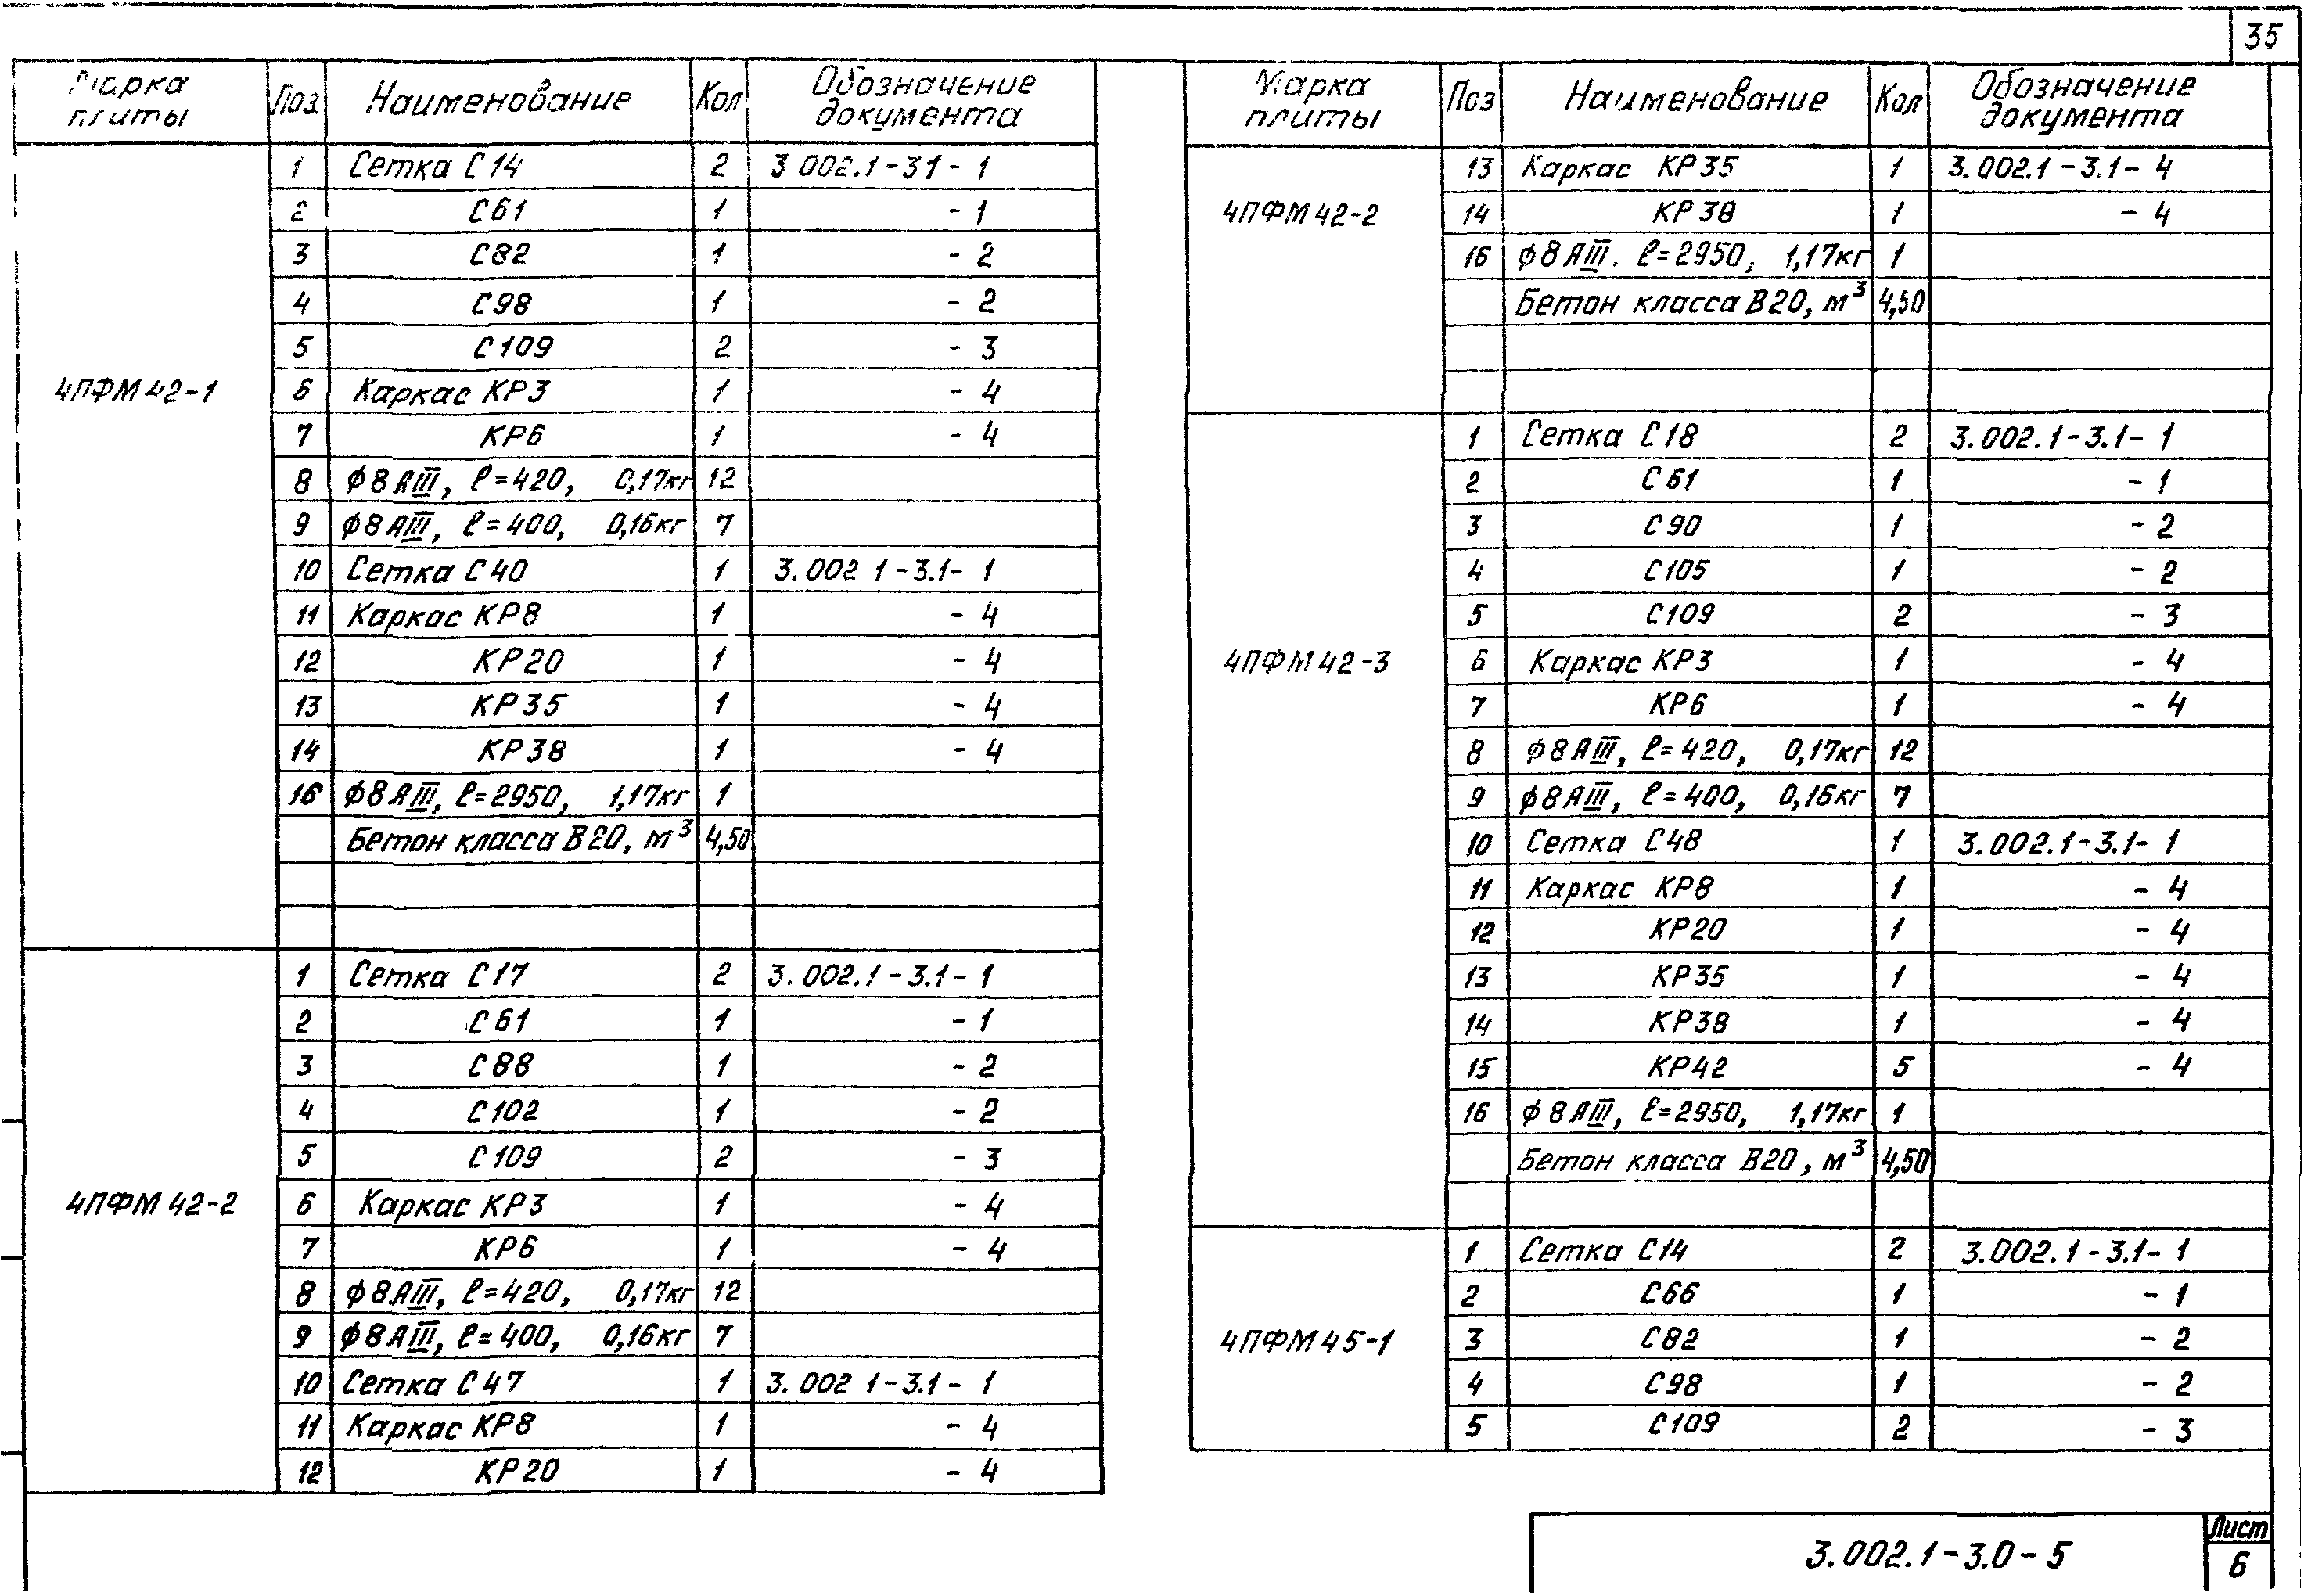 35
Марка плиты Поз Наименование Кол Обозначение документа
4ПФМ42-1
1 Сетка С14 2 3 002.1-31-1
2 С61 1 -1
3 С82 1 -2
4 С98 1 -2
5 С109 2 -3
6 Каркас КР3 1 -4
7 КР6 1 -4
8 ϕ8АIII, ℓ=420, 0,17кг 12
9 ϕ8АIII, ℓ=400, 0,16кг 7
10 Сетка С40 1 3.002 1-3.1-1
11 Каркас КР8 1 -4
12 КР20 1 -4
13 КР35 1 -4
14 КР38 1 -4
16 ϕ8АIII, ℓ=2950, 1,17кг 1
Бетон класса В20, м³ 4,50
4ПФМ42-2
1 Сетка С17 2 3.002.1-3.1-1
2 С61 1 -1
3 С88 1 -2
4 С102 1 -2
5 С109 2 -3
6 Каркас КР3 1 -4
7 КР6 1 -4
8 ϕ8АIII, ℓ=420, 0,17кг 12
9 ϕ8АIII, ℓ=400, 0,16кг 7
10 Сетка С47 1 3.002 1-3.1-1
11 Каркас КР8 1 -4
12 КР20 1 -4
Марка плиты Поз Наименование Кол Обозначение документа
4ПФМ42-2
13 Каркас КР35 1 3.002.1-3.1-4
14 КР38 1 -4
16 ϕ8АIII. ℓ=2950, 1,17кг 1
Бетон класса В20, м³ 4,50
4ПФМ42-3
1 Сетка С18 2 3.002.1-3.1-1
2 С61 1 -1
3 С90 1 -2
4 С105 1 -2
5 С109 2 -3
6 Каркас КР3 1 -4
7 КР6 1 -4
8 ϕ8АIII, ℓ=420, 0,17кг 12
9 ϕ8АIII, ℓ=400, 0,16кг 7
10 Сетка С48 1 3.002.1-3.1-1
11 Каркас КР8 1 -4
12 КР20 1 -4
13 КР35 1 -4
14 КР38 1 -4
15 КР42 5 -4
16 ϕ8АIII, ℓ=2950, 1,17кг 1
Бетон класса В20, м³ 4,50
4ПФМ45-1
1 Сетка С14 2 3.002.1-3.1-1
2 С66 1 -1
3 С82 1 -2
4 С98 1 -2
5 С109 2 -3
3.002.1-3.0-5
Лист
6